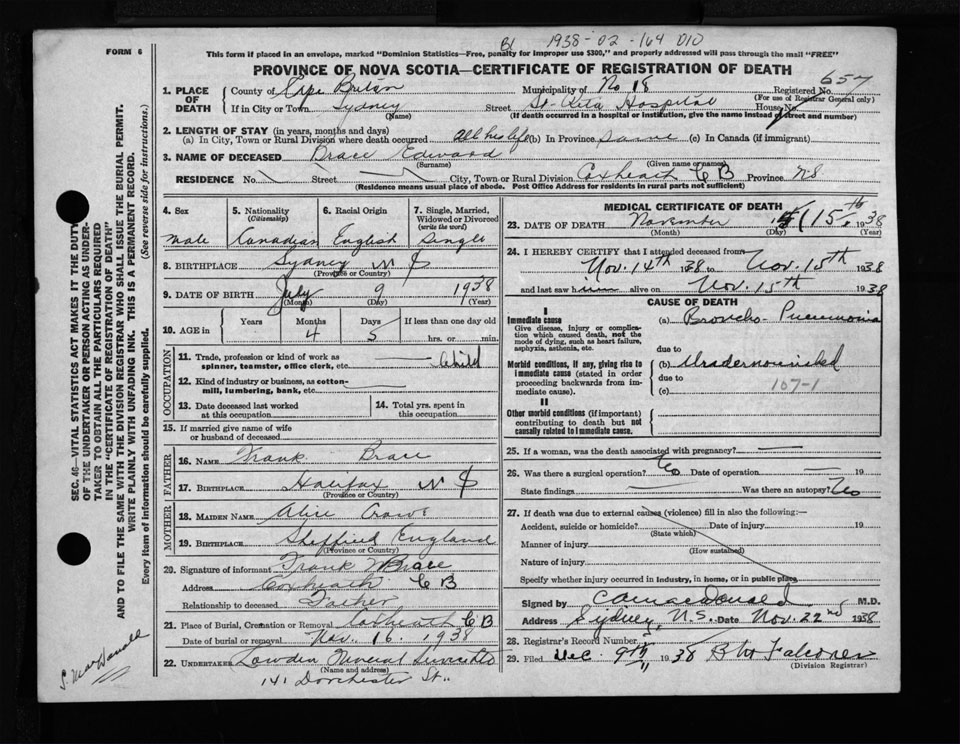 BL 1938-02-164 010
FORM 6
This form if placed in an envelope, marked "Dominion Statistics—Free, penalty for improper use $300," and properly addressed will pass through the mail "FREE"
PROVINCE OF NOVA SCOTIA—CERTIFICATE OF REGISTRATION OF DEATH
657
1. PLACE OF DEATH
County of Cape Breton Municipality of No 18 Registered No.
(For use of Registrar General only)
If in City or Town Sydney Street St. Rita Hospital House No.
(Name) (If death occurred in a hospital or institution, give the name instead of street and number)
2. LENGTH OF STAY (in years, months and days)
(a) In City, Town or Rural Division where death occurred All his life (b) In Province Same (c) In Canada (if immigrant)
3. NAME OF DECEASED Brace Edward
(Given name or names)
RESIDENCE No. Street City, Town or Rural Division Coxheath C B Province N S
(Residence means usual place of abode. Post Office Address for residents in rural parts not sufficient)
4. Sex 5. Nationality (Citizenship) 6. Racial Origin 7. Single, Married, Widowed or Divorced (write the word)
Male Canadian English Single
8. BIRTHPLACE Sydney N S
(Province or Country)
9. DATE OF BIRTH July 9 1938
(Month) (Day) (Year)
10. AGE in Years Months Days If less than one day old
4 5 hrs. or min.
OCCUPATION
11. Trade, profession or kind of work as spinner, teamster, office clerk, etc. Child
12. Kind of industry or business, as cotton-mill, lumbering, bank, etc.
13. Date deceased last worked at this occupation
14. Total yrs. spent in this occupation
15. If married give name of wife or husband of deceased
FATHER
16. NAME Frank Brace
17. BIRTHPLACE Halifax N S
(Province or Country)
MOTHER
18. MAIDEN NAME Alice Crowe
19. BIRTHPLACE Sheffield England
(Province or Country)
20. Signature of informant Frank Brace
Address Coxheath C B
Relationship to deceased Father
21. Place of Burial, Cremation or Removal Coxheath C B
Date of burial or removal Nov. 16. 1938
22. UNDERTAKER Lowden Funeral Service Ltd
(Name and address)
141 Dorchester St.
MEDICAL CERTIFICATE OF DEATH
23. DATE OF DEATH November 15th 1938
(Month) (Day) (Year)
24. I HEREBY CERTIFY that I attended deceased from
Nov. 14th 1938 to Nov. 15th 1938
and last saw him alive on Nov. 15th 1938
CAUSE OF DEATH
I
Immediate cause
Give disease, injury or complication which caused death, not the mode of dying, such as heart failure, asphyxia, asthenia, etc.
(a) Broncho-Pneumonia
due to
Morbid conditions, if any, giving rise to immediate cause (stated in order proceeding backwards from immediate cause).
(b) Undernourished
due to
(c) 107-1
II
Other morbid conditions (if important) contributing to death but not causally related to immediate cause.
25. If a woman, was the death associated with pregnancy?
26. Was there a surgical operation? No Date of operation 19
State findings Was there an autopsy? No
27. If death was due to external causes (violence) fill in also the following:—
Accident, suicide or homicide? Date of injury 19
(State which)
Manner of injury
(How sustained)
Nature of injury
Specify whether injury occurred in industry, in home, or in public place
Signed by MacDonald M.D.
Address Sydney, N.S. Date Nov. 22nd 1938
28. Registrar's Record Number
29. Filed Dec. 9th 1938 B W Falconer
(Division Registrar)
SEC. 46—VITAL STATISTICS ACT MAKES IT THE DUTY
OF THE UNDERTAKER OR PERSON ACTING AS UNDER-
TAKER TO OBTAIN ALL THE PARTICULARS REQUIRED
IN THE "CERTIFICATE OF REGISTRATION OF DEATH"
AND TO FILE THE SAME WITH THE DIVISION REGISTRAR WHO SHALL ISSUE THE BURIAL PERMIT.
WRITE PLAINLY WITH UNFADING INK. THIS IS A PERMANENT RECORD.
Every item of information should be carefully supplied. (See reverse side for instructions.)
S. MacDonald